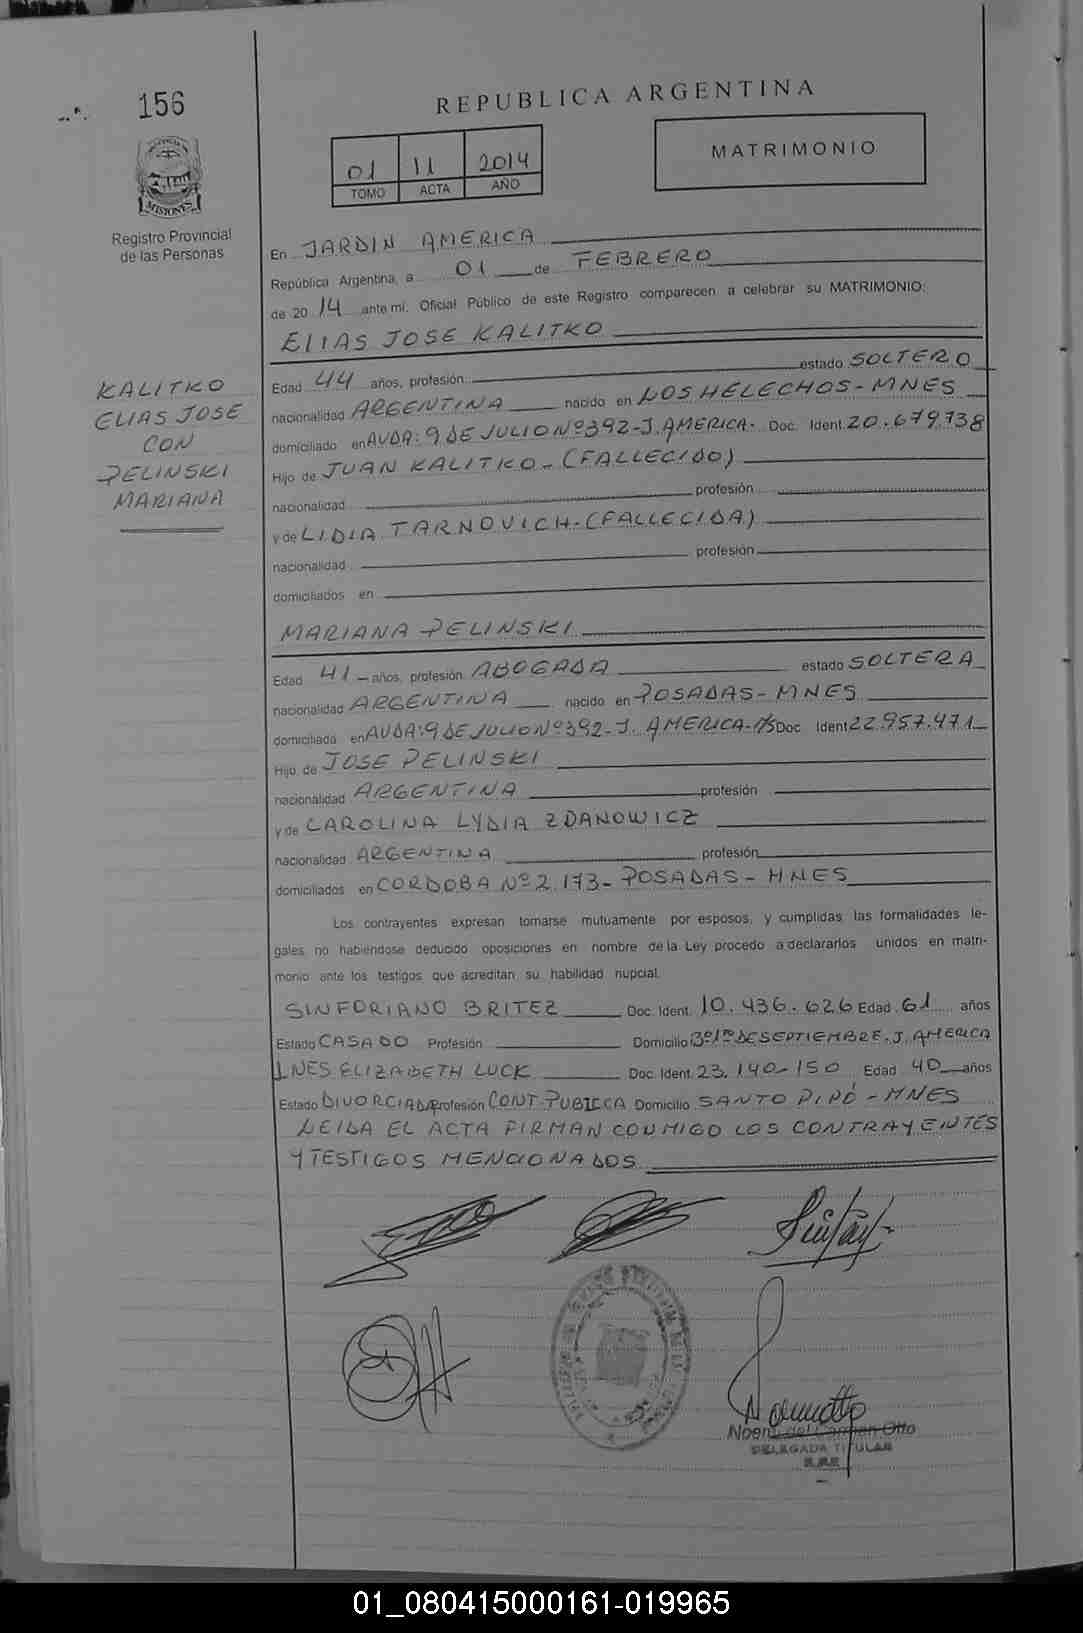 156
REPUBLICA ARGENTINA
01 11 2014
TOMO ACTA AÑO
MATRIMONIO
MISIONES
Registro Provincial
de las Personas
En JARDIN AMERICA
República Argentina, a 01 de FEBRERO
de 20 14 ante mí, Oficial Público de este Registro comparecen a celebrar su MATRIMONIO:
ELIAS JOSE KALITKO
KALITKO
ELIAS JOSE
CON
PELINSKI
MARIANA
Edad 44 años, profesión estado SOLTERO
nacionalidad ARGENTINA nacido en LOS HELECHOS - MNES
domiciliado en AVDA: 9 DE JULIO Nº 392 - J. AMERICA - Doc. Ident. 20.679.738
Hijo de JUAN KALITKO - (FALLECIDO)
nacionalidad profesión
y de LIDIA TARNOVICH - (FALLECIDA)
nacionalidad profesión
domiciliados en
MARIANA PELINSKI
Edad 41 años, profesión ABOGADA estado SOLTERA
nacionalidad ARGENTINA nacido en POSADAS - MNES
domiciliada en AVDA: 9 DE JULIO Nº 392 - J. AMERICA - Doc. Ident. 22.957.471
Hijo de JOSE PELINSKI
nacionalidad ARGENTINA profesión
y de CAROLINA LYDIA ZDANOWICZ
nacionalidad ARGENTINA profesión
domiciliados en CORDOBA Nº 2.173 - POSADAS - MNES
Los contrayentes expresan tomarse mutuamente por esposos, y cumplidas las formalidades le-
gales, no habiéndose deducido oposiciones en nombre de la Ley procedo a declararlos unidos en matri-
monio ante los testigos que acreditan su habilidad nupcial.
SINFORIANO BRITEZ Doc. Ident. 10.436.626 Edad 61 años
Estado CASADO Profesión Domicilio Bº 1º DE SEPTIEMBRE - J. AMERICA
INES ELIZABETH LUCK Doc. Ident. 23.140-150 Edad 40 años
Estado DIVORCIADA Profesión CONT. PUBLICA Domicilio SANTO PIPÓ - MNES
LEIDA EL ACTA FIRMAN CONMIGO LOS CONTRAYENTES
Y TESTIGOS MENCIONADOS
Noemi del Carmen Otto
DELEGADA TITULAR
01_080415000161-019965